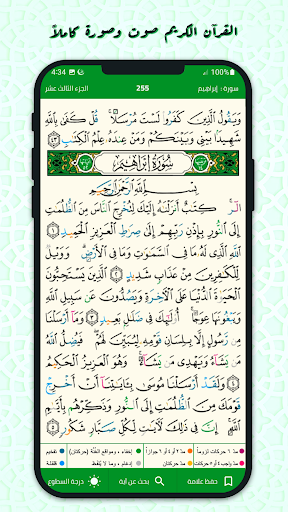 القرآن الكريم صوت وصورة كاملاً
4:34 100%
سورة : إبراهيم 255 الجزء الثالث عشر
وَيَقُولُ ٱلَّذِينَ كَفَرُوا۟ لَسْتَ مُرْسَلًا ۚ قُلْ كَفَىٰ بِٱللَّهِ
شَهِيدًۢا بَيْنِى وَبَيْنَكُمْ وَمَنْ عِندَهُۥ عِلْمُ ٱلْكِتَٰبِ ٤٣
سُورَةُ إِبْرَاهِيمَ
بِسْمِ ٱللَّهِ ٱلرَّحْمَٰنِ ٱلرَّحِيمِ
الٓر ۚ كِتَٰبٌ أَنزَلْنَٰهُ إِلَيْكَ لِتُخْرِجَ ٱلنَّاسَ مِنَ ٱلظُّلُمَٰتِ
إِلَى ٱلنُّورِ بِإِذْنِ رَبِّهِمْ إِلَىٰ صِرَٰطِ ٱلْعَزِيزِ ٱلْحَمِيدِ ١
ٱللَّهِ ٱلَّذِى لَهُۥ مَا فِى ٱلسَّمَٰوَٰتِ وَمَا فِى ٱلْأَرْضِ ۗ وَوَيْلٌ
لِّلْكَٰفِرِينَ مِنْ عَذَابٍ شَدِيدٍ ٢ ٱلَّذِينَ يَسْتَحِبُّونَ
ٱلْحَيَوٰةَ ٱلدُّنْيَا عَلَى ٱلْءَاخِرَةِ وَيَصُدُّونَ عَن سَبِيلِ ٱللَّهِ
وَيَبْغُونَهَا عِوَجًا ۚ أُو۟لَٰٓئِكَ فِى ضَلَٰلٍۭ بَعِيدٍ ٣ وَمَآ أَرْسَلْنَا
مِن رَّسُولٍ إِلَّا بِلِسَانِ قَوْمِهِۦ لِيُبَيِّنَ لَهُمْ ۖ فَيُضِلُّ ٱللَّهُ
مَن يَشَآءُ وَيَهْدِى مَن يَشَآءُ ۚ وَهُوَ ٱلْعَزِيزُ ٱلْحَكِيمُ
٤ وَلَقَدْ أَرْسَلْنَا مُوسَىٰ بِـَٔايَٰتِنَآ أَنْ أَخْرِجْ
قَوْمَكَ مِنَ ٱلظُّلُمَٰتِ إِلَى ٱلنُّورِ وَذَكِّرْهُم بِأَيَّىٰمِ
ٱللَّهِ ۚ إِنَّ فِى ذَٰلِكَ لَءَايَٰتٍ لِّكُلِّ صَبَّارٍ شَكُورٍ ٥
مد 6 حركات لزوماً مد 2 أو 4 أو 6 جوازاً إخفاء، ومواقع الغنّة (حركتان) تفخيم
مد واجب 4 أو 5 حركات مد حركتان إدغام، وما لا يُلفظ قلقلة
حفظ علامة بحث عن آية درجة السطوع